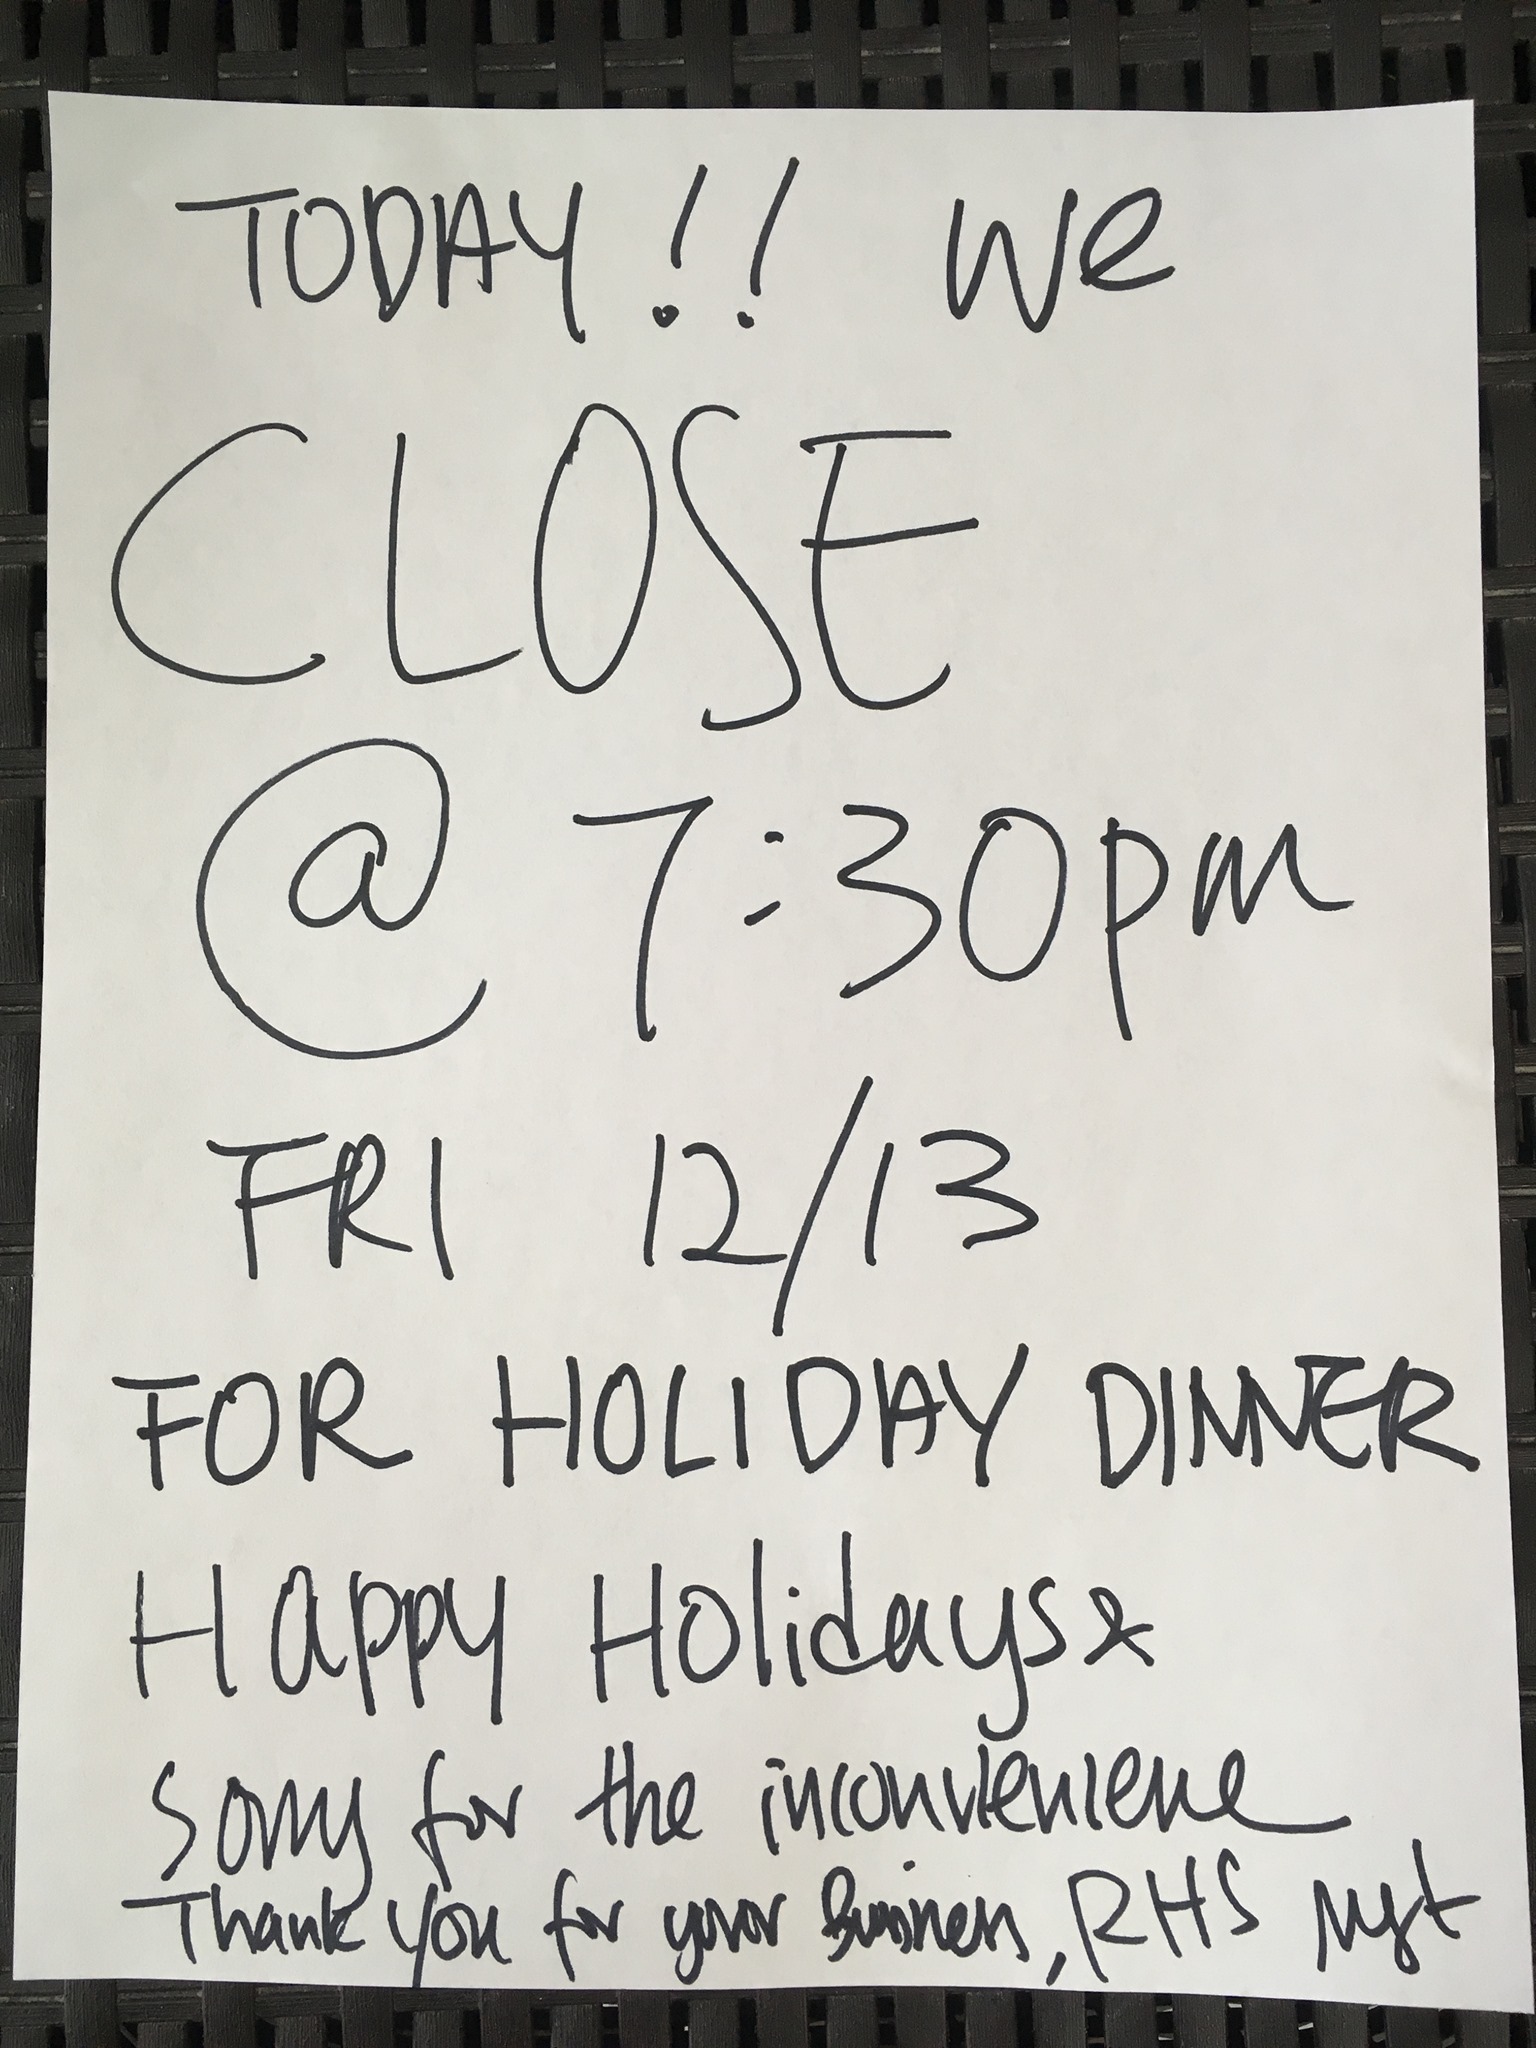 TODAY!! We
CLOSE
@ 7:30pm
FRI 12/13
FOR HOLIDAY DINNER
Happy Holidays &
Sorry for the inconvenience
Thank you for your Business, RHS Mgt